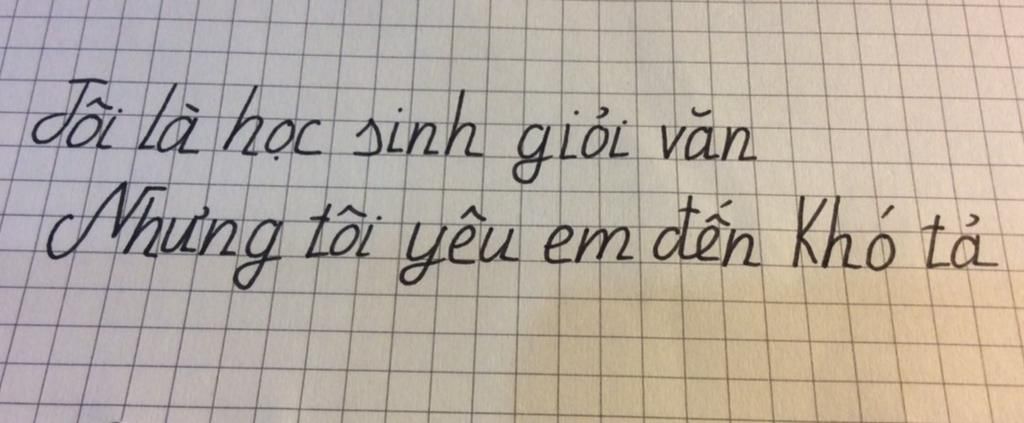 Tôi là học sinh giỏi văn
Nhưng tôi yêu em đến Khó tả